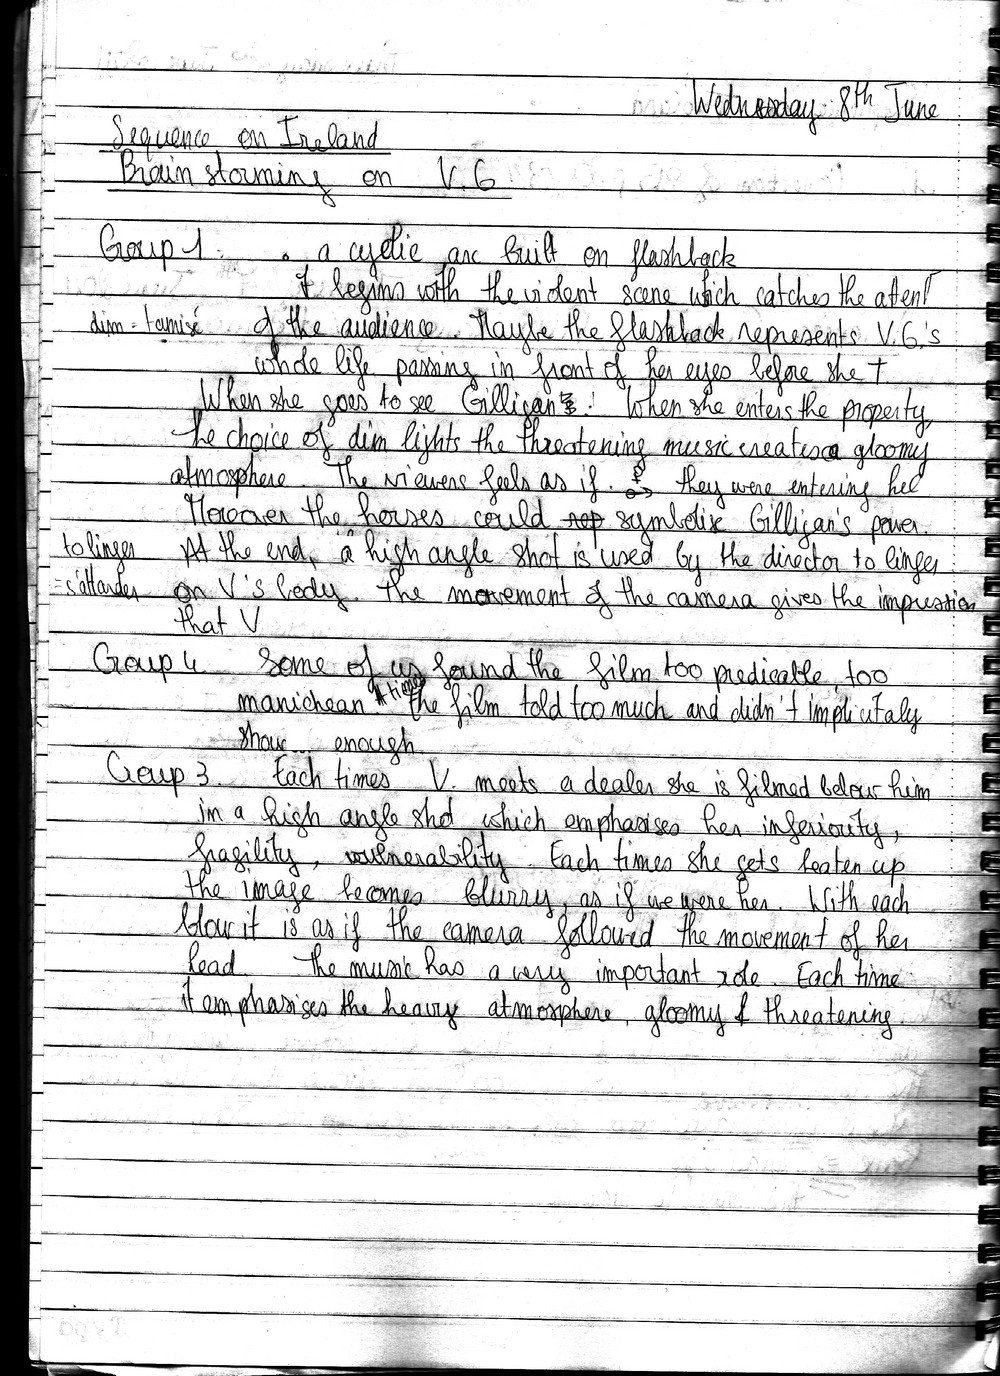 Wednesday 8th June
Sequence on Ireland
Brain storming on V.G
Group 1 : . a cyclic arc built on flashback
It begins with the violent scene which catches the attent°
dim = tamisé of the audience. Maybe the flashback represents V.G.'s
whole life passing in front of her eyes before she †
When she goes to see Gilligan : When she enters the property,
the choice of dim lights the threatening music creates a gloomy
atmosphere. The viewers feels as if they were entering hel
Moreover the horses could rep symbolize Gilligan's power.
to linger At the end, a high angle shot is used by the director to linger
= s'attarder on V's body. The movement of the camera gives the impression
that V
Group 4 Some of us found the film too predicable, too
manichean At times the film told too much and didn't implicitaly
show enough
Group 3. Each times V. meets a dealer she is filmed below him
in a high angle shot which emphasises her inferiority,
fragility, vulnerability. Each times she gets beaten up
the image becomes blurry, as if we were her. With each
blow it is as if the camera followed the movement of her
head The music has a very important role. Each time
it emphasises the heavy atmosphere, gloomy & threatening.